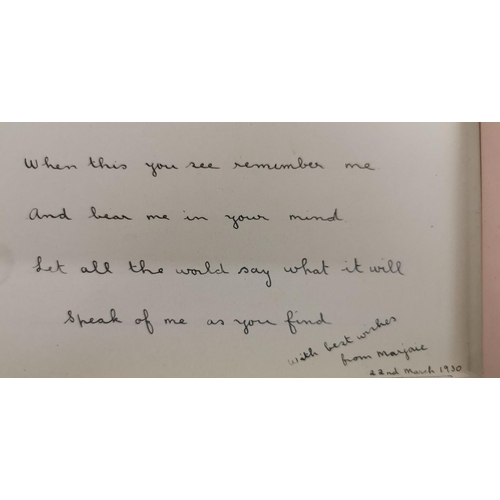 When this you see remember me.
And bear me in your mind.
Let all the world say what it will
Speak of me as you find
with best wishes
from Marjorie
22nd March 1930